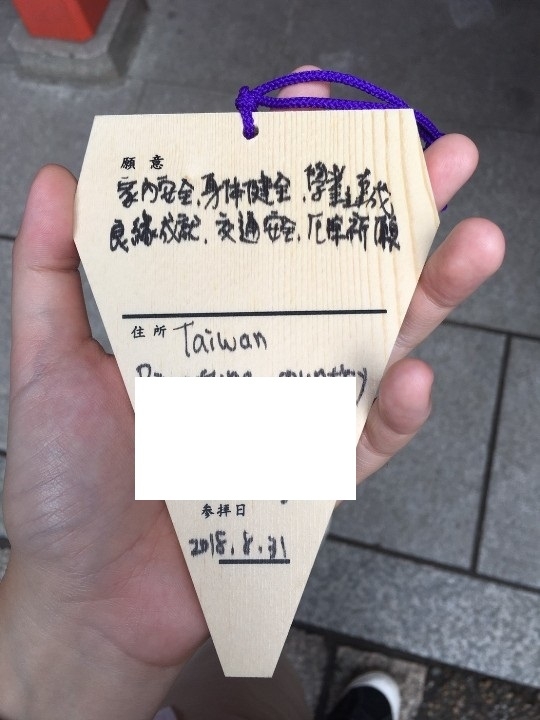 願意
家内安全、身体健全、學業達成
良緣成就、交通安全、厄除祈願
住所 Taiwan
country
参拝日
2018.8.31